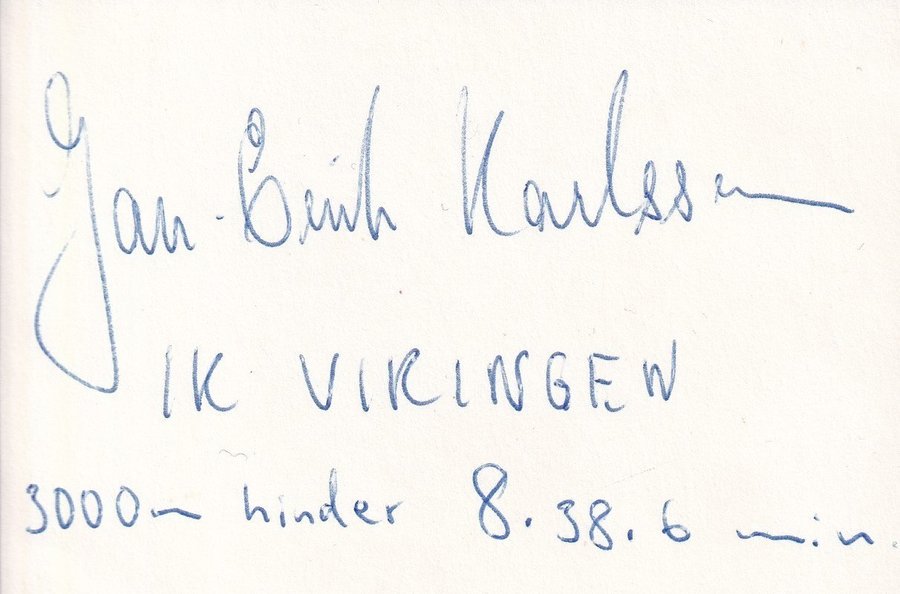 Jan-Erik Karlsson
IK VIKINGEN
3000m hinder 8.38.6 min.